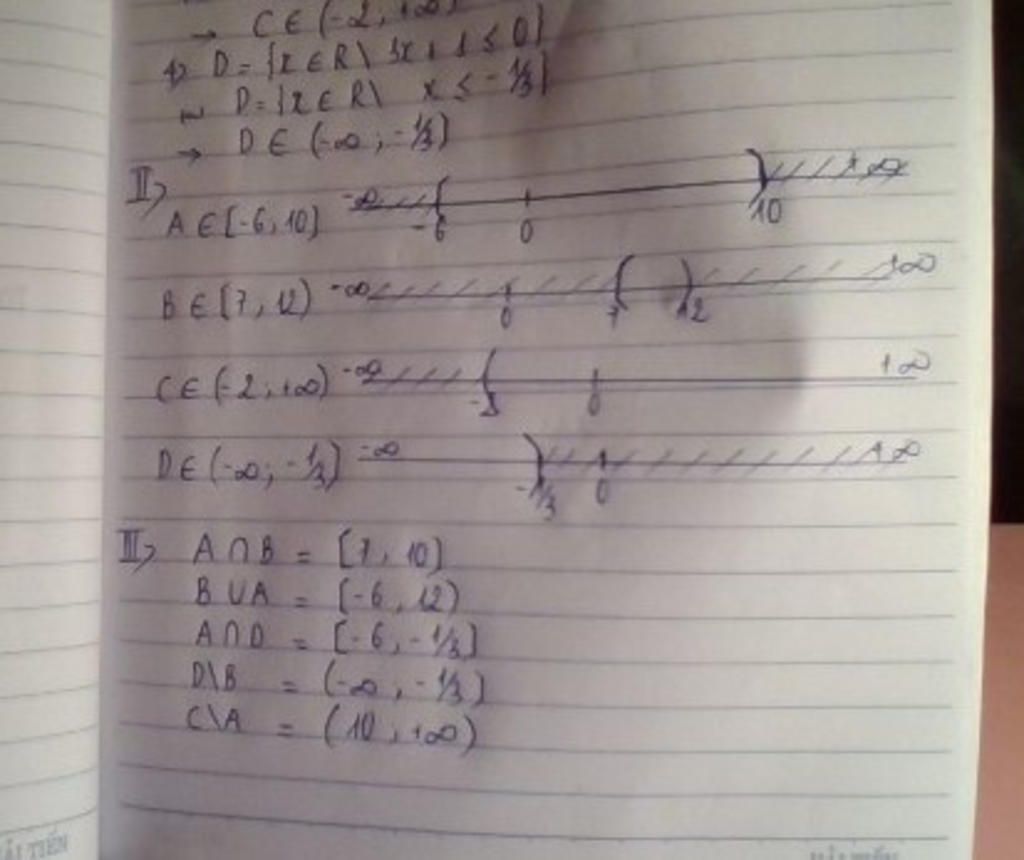 → C ∈ (-2, +∞)
4) D = {x ∈ R \ 3x + 1 ≤ 0}
D = {x ∈ R \ x ≤ -1/3}
→ D ∈ (-∞ ; -1/3]
II)
A ∈ [-6, 10] -∞ -6 0 10 +∞
B ∈ [7, 12) -∞ 0 7 12 +∞
C ∈ (-2; +∞) -∞ -2 0 +∞
D ∈ (-∞; -1/3] -∞ -1/3 0 +∞
III) A ∩ B = [7, 10]
B ∪ A = [-6, 12)
A ∩ D = [-6, -1/3]
D\B = (-∞, -1/3]
C\A = (10, +∞)
HẢI TIẾN HẢI TIẾN